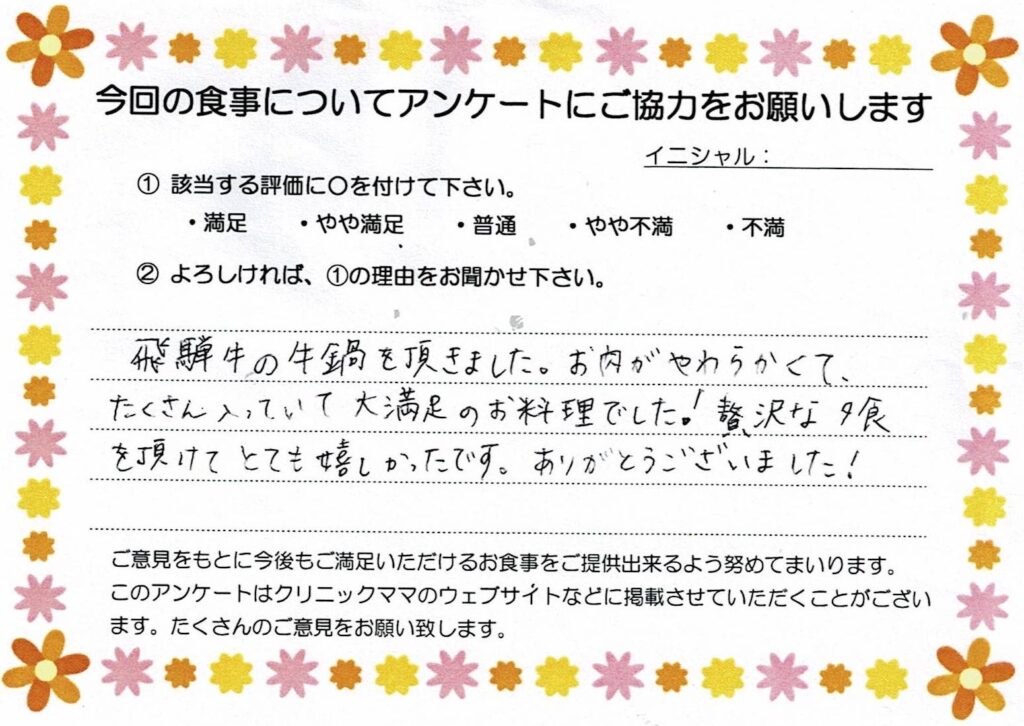 今回の食事についてアンケートにご協力をお願いします
イニシャル：
① 該当する評価に〇を付けて下さい。
・満足　・やや満足　・普通　・やや不満　・不満
② よろしければ、①の理由をお聞かせ下さい。
飛騨牛の牛鍋を頂きました。お肉がやわらかくて、
たくさん入っていて大満足のお料理でした！贅沢な夕食
を頂けてとても嬉しかったです。ありがとうございました！
ご意見をもとに今後もご満足いただけるお食事をご提供出来るよう努めてまいります。
このアンケートはクリニックママのウェブサイトなどに掲載させていただくことがござい
ます。たくさんのご意見をお願い致します。